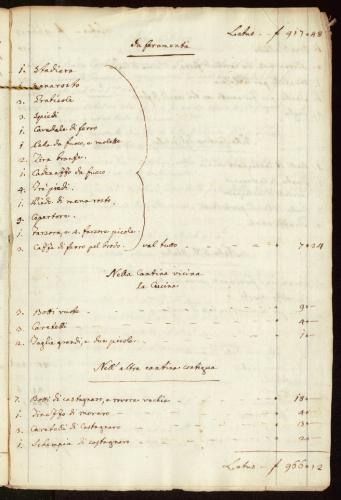 Latus - f 917 " 48
In feramenta
1. Stadiera
menarosto
3. Graticole
3. Spiedi
1. Cavedale di ferro
1 Pala da fuoco, e molette
2. Tira bronse.
1. Cadenasso da fuoco
4. Tre piedi.
1. Piede di mena rosto.
9. Copertore.
1. farsora, e 4. farsore picole.
3. Casse di ferro pel brodo. val tutto - - - " 7 " 24
Nella Cantina vicina
la Cucina
3. Botti vuote - - - " 9 " -
3. Caratelli - - - " 4 " -
2. Taglie grandi, e due picole - - - " 1 " -
Nell' altra cantina contigua
7. Botti di castagnaro, e rovere vechie - " 18 " -
1. di moraro - - - " 4 " -
3. Caratelli di Castagnaro - - - " 3 " -
1. di castagnaro - - - " 2 " -
Latus - f 966 " 12